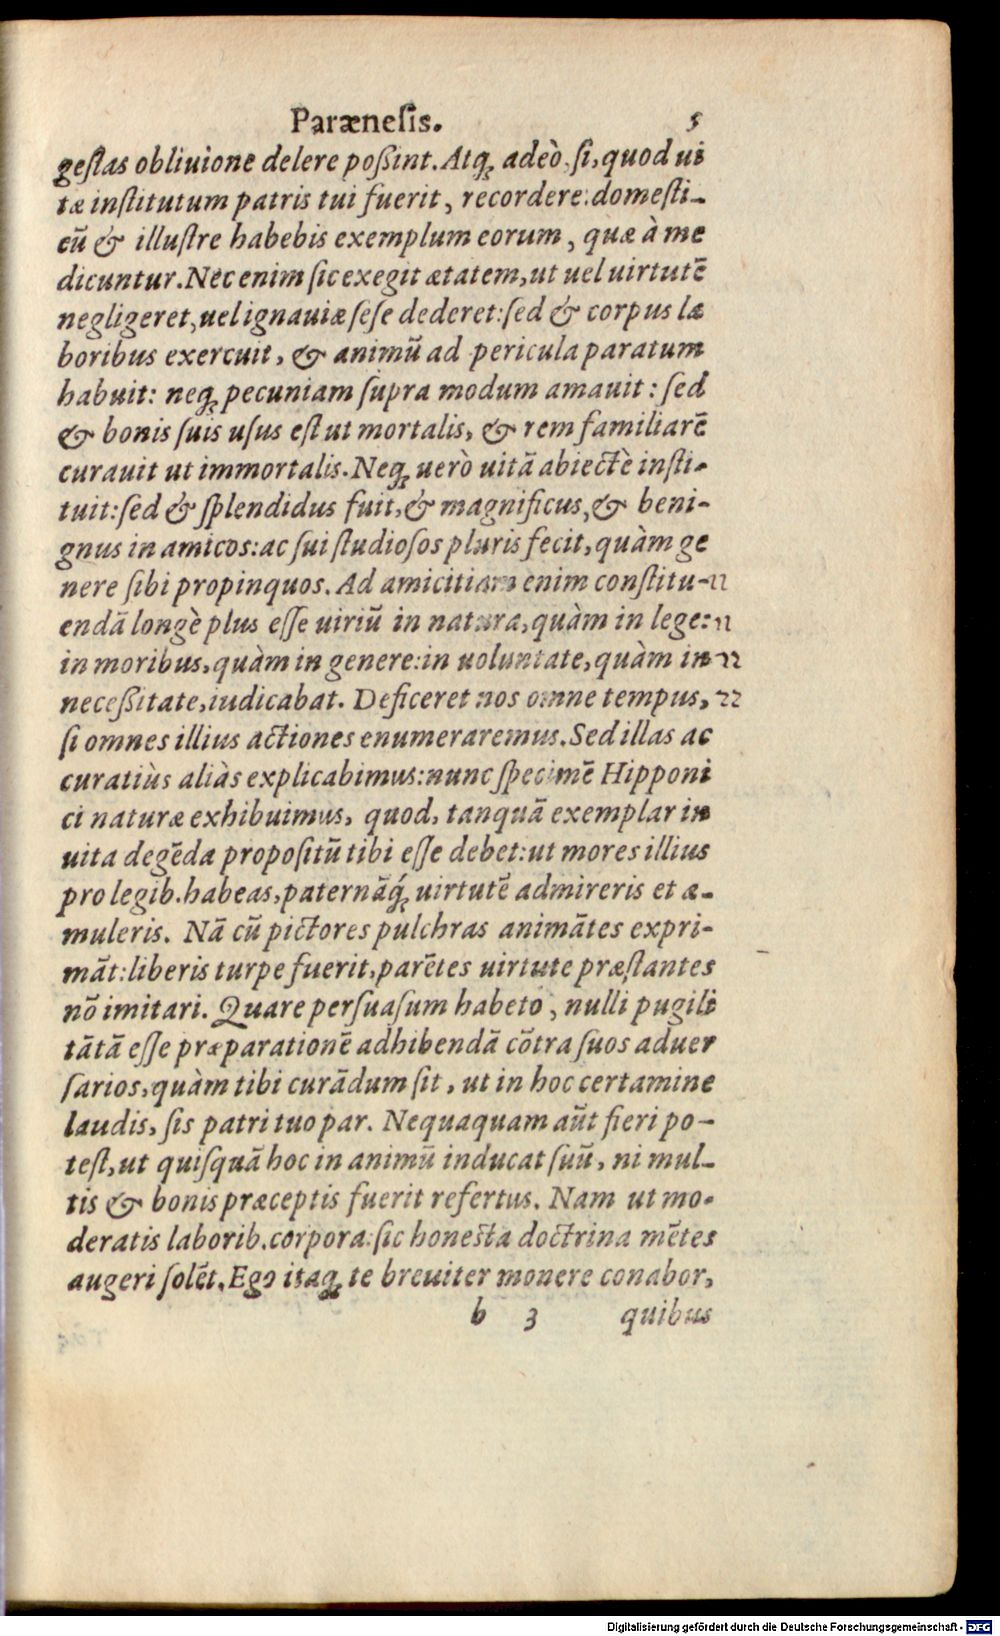 Parænesis. 5
gestas obliuione delere poßint. Atq; adeò, si, quod ui
tæ institutum patris tui fuerit, recordere: domesti-
cũ & illustre habebis exemplum eorum, quæ à me
dicuntur. Nec enim sic exegit ætatem, ut uel uirtutẽ
negligeret, uel ignauiæ sese dederet: sed & corpus la
boribus exercuit, & animũ ad pericula paratum
habuit: neq; pecuniam supra modum amauit: sed
& bonis suis usus est ut mortalis, & rem familiarẽ
curauit ut immortalis. Neq; uerò uitã abiectè insti-
tuit: sed & splendidus fuit, & magnificus, & beni-
gnus in amicos: ac sui studiosos pluris fecit, quàm ge
nere sibi propinquos. Ad amicitiam enim constitu-
endã longè plus esse uiriũ in natura, quàm in lege:
in moribus, quàm in genere: in uoluntate, quàm in
neceßitate, iudicabat. Deficeret nos omne tempus,
si omnes illius actiones enumeraremus. Sed illas ac
curatiùs aliàs explicabimus: nunc specimẽ Hipponi
ci naturæ exhibuimus, quod, tanquã exemplar in
uita degẽda propositũ tibi esse debet: ut mores illius
pro legib. habeas, paternãq́; uirtutẽ admireris et æ-
muleris. Nã cũ pictores pulchras animãtes expri-
mãt: liberis turpe fuerit, parẽtes uirtute præstantes
nõ imitari. Quare persuasum habeto, nulli pugili
tãtã esse præparationẽ adhibendã cõtra suos aduer
sarios, quàm tibi curãdum sit, ut in hoc certamine
laudis, sis patri tuo par. Nequaquam aũt fieri po-
test, ut quisquã hoc in animũ inducat suũ, ni mul-
tis & bonis præceptis fuerit refertus. Nam ut mo-
deratis laborib. corpora: sic honesta doctrina mẽtes
augeri solẽt. Ego itaq; te breuiter monere conabor,
b 3 quibus
Digitalisierung gefördert durch die Deutsche Forschungsgemeinschaft - DFG